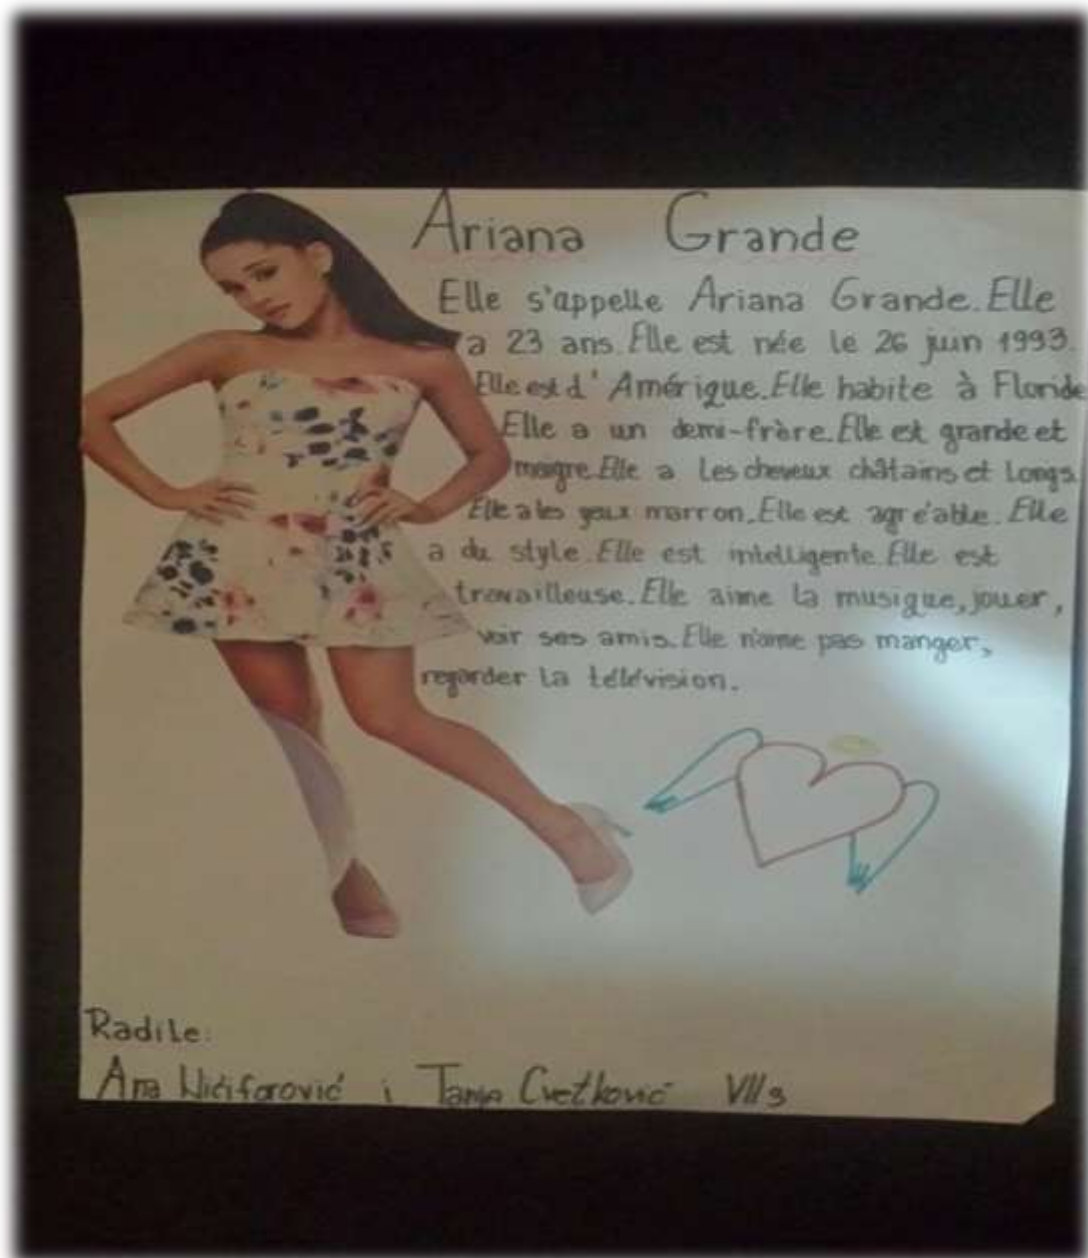 Ariana Grande
Elle s'appelle Ariana Grande. Elle
a 23 ans. Elle est née le 26 juin 1993.
Elle est d'Amérique. Elle habite à Floride
Elle a un demi-frère. Elle est grande et
maigre. Elle a les cheveux châtains et longs.
Elle a les yeux marron. Elle est agréable. Elle
a du style. Elle est intelligente. Elle est
travailleuse. Elle aime la musique, jouer,
voir ses amis. Elle n'aime pas manger,
regarder la télévision.
Radile:
Ana Nićiforović i Tanja Cvetković VII3